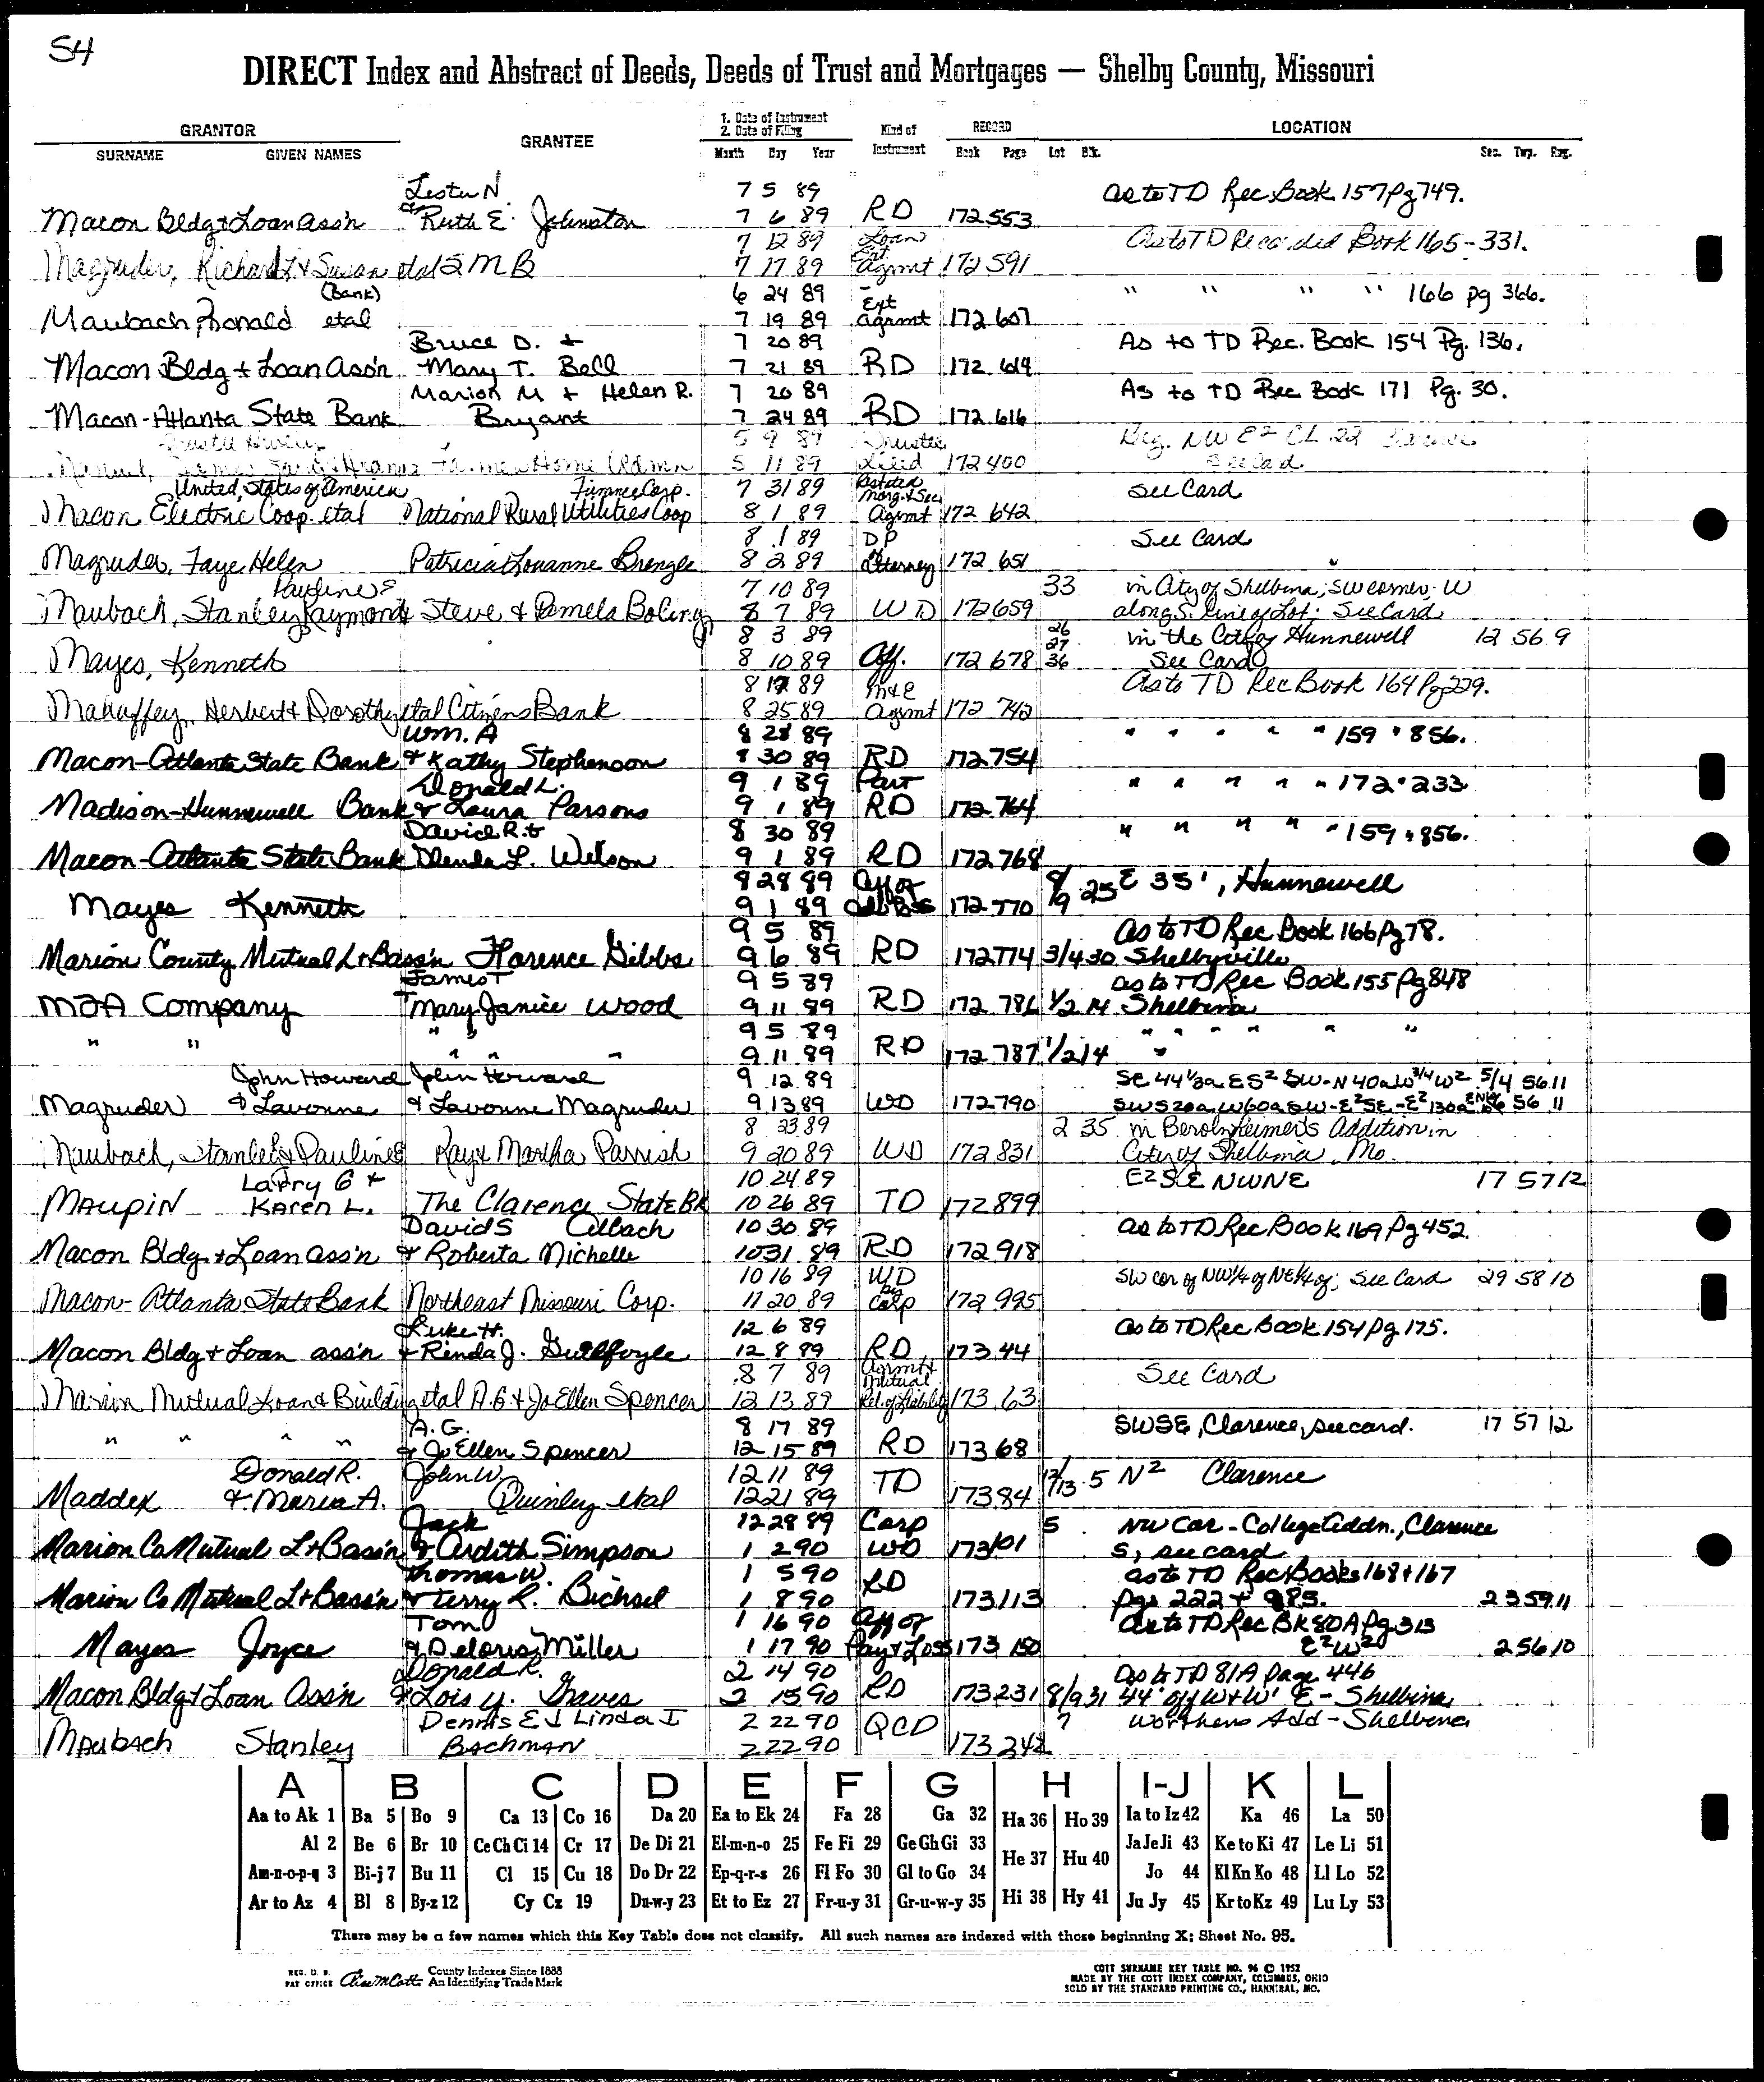 54
DIRECT Index and Abstract of Deeds, Deeds of Trust and Mortgages — Shelby County, Missouri
GRANTOR GRANTEE 1. Date of Instrument 2. Date of Filing Kind of Instrument RECORD LOCATION
SURNAME GIVEN NAMES Month Day Year Book Page Lot Blk. Sec. Twp. Rng.
Lester N. 7 5 89 As to TD Rec Book 157 Pg 749.
Macon Bldg & Loan Ass'n & Ruth E. Johnston 7 6 89 RD 172 553
7 12 89 Loan As to TD Recorded Book 165-331.
Magruder, Richard L & Susan etal S M B 7 17 89 Ext Agrmt 172 591
(Bank) 6 24 89 " " " " 166 pg 366.
Maubach, Ronald etal 7 19 89 Ext agrmt 172 607
Bruce D. + 7 20 89 As to TD Rec. Book 154 Pg. 136.
Macon Bldg + Loan Ass'n Mary T. Bell 7 21 89 RD 172 614
Marion M + Helen R. 7 20 89 As to TD Rec Book 171 Pg. 30.
Macon-Atlanta State Bank Bryant 7 24 89 RD 172 616
5 9 89 Trustee Beg. NW E2
Home Admn 5 11 89 Deed 172 400 See Card
United States of America Finance Corp. 7 31 89 Restated Morg. & Sec See Card
Macon Electric Coop. etal National Rural Utilities Coop 8 1 89 Agrmt 172 642
8 1 89 DP See Card
Magruder, Faye Helen Patricia Louanne Brengle 8 2 89 Attorney 172 651 "
Pauline E 7 10 89 33 in City of Shelbina; SW corner; W
Maubach, Stanley Raymond & Steve & Pamela Boling 8 7 89 WD 172 659 along S. line of Lot; See Card
8 3 89 26 27 in the City of Hunnewell 12 56 9
Mayes, Kenneth 8 10 89 Aff. 172 678 36 See Card
8 17 89 M&E As to TD Rec Book 164 Pg 229.
Mahaffey, Herbert & Dorothy etal Citizens Bank 8 25 89 Agrmt 172 742
Wm. A 8 28 89 " " " " " 159 " 856.
Macon-Atlanta State Bank & Kathy Stephenson 8 30 89 RD 172 754
Donald L. 9 1 89 Part " " " " " 172 " 233
Madison-Hunnewell Bank & Laura Parsons 9 1 89 RD 172 764
David R. & 8 30 89 " " " " " 159 " 856.
Macon-Atlanta State Bank Glenda L. Wilson 9 1 89 RD 172 768
8 28 89 Aff of 8/9 25 E 35', Hunnewell
Mayes Kenneth 9 1 89 172 770
9 5 89 As to TD Rec Book 166 Pg 78.
Marion County Mutual L & B ass'n Florence Gibbs 9 6 89 RD 172 774 3/4 30 Shelbyville
James T 9 5 89 As to TD Rec Book 155 Pg 848
MJA Company & Mary Janice Wood 9 11 89 RD 172 786 1/2 14 Shelbina
" " " " 9 5 89 " " " " " "
" " " 9 11 89 RD 172 787 1/2 14 "
John Howard John Howard 9 12 89 SE 44 1/3a ES2 SW-N 40a W 3/4 W2 5/4 56 11
Magruder & Lavonne & Lavonne Magruder 9 13 89 WD 172 790 SW S 20a W60a SW-E2SE-E2 130a 56 11
8 23 89 2 35 in Berolzheimer's Addition in
Maubach, Stanley & Pauline E Ray & Martha Parrish 9 20 89 WD 172 831 City of Shelbina, Mo.
Larry G + 10 24 89 E2SE NWNE 17 57 12
Maupin Karen L. The Clarence State Bk 10 26 89 TD 172 899
David S 10 30 89 As to TD Rec Book 169 Pg 452.
Macon Bldg & Loan Ass'n & Roberta Michelle 10 31 89 RD 172 918
10 16 89 WD SW cor of NW1/4 of NE1/4 of; See Card 29 58 10
Macon-Atlanta State Bank Northeast Missouri Corp. 11 20 89 by Corp 172 995
Luke H. 12 6 89 As to TD Rec Book 154 Pg 175.
Macon Bldg & Loan ass'n & Rinda J. Guilfoyle 12 8 89 RD 173 44
8 7 89 Agrmt & Mutual See Card
Marion Mutual Loan & Building etal A.G & Jo Ellen Spencer 12 13 89 Rel. of Liability 173 63
A.G. 8 17 89 SWSE, Clarence, see card. 17 57 12
" " " " & Jo Ellen Spencer 12 15 89 RD 173 68
Donald R. John W. 12 11 89 TD 12/13 5 N2 Clarence
Maddex & Maria A. Quinley etal 12 21 89 173 84
Jack 12 28 89 Corp 5 NW Cor - College Addn., Clarence
Marion Co Mutual L & B ass'n & Ardith Simpson 1 2 90 WD 173 101 S, see card
Thomas W. 1 5 90 As to TD Rec Books 168 & 167
Marion Co Mutual L & B ass'n & Terry R. Bichsel 1 8 90 RD 173 113 pgs 222 & 985. 23 59 11
Tom 1 16 90 Aff of As to TD Rec Bk 80A Pg 313
Mayes Joyce & Deloris Miller 1 17 90 Pay & Loss 173 150 E2W2 2 56 10
Donald R. 2 14 90 As to TD 81A Page 446
Macon Bldg & Loan Ass'n & Lois Y. Graves 2 15 90 RD 173 231 8/9 31 44' off W & W' E - Shelbina
Dennis E & Linda I 2 22 90 QCD 7 Worthens Add - Shelbina
Maubach Stanley Bachman 2 22 90 173 242
A B C D E F G H I-J K L
Aa to Ak 1 Ba 5 Bo 9 Ca 13 Co 16 Da 20 Ea to Ek 24 Fa 28 Ga 32 Ha 36 Ho 39 Ia to Iz 42 Ka 46 La 50
Al 2 Be 6 Br 10 Ce Ch Ci 14 Cr 17 De Di 21 El-m-n-o 25 Fe Fi 29 Ge Gh Gi 33 He 37 Hu 40 Ja Je Ji 43 Ke to Ki 47 Le Li 51
Am-n-o-p-q 3 Bi-j 7 Bu 11 Cl 15 Cu 18 Do Dr 22 Ep-q-r-s 26 Fl Fo 30 Gl to Go 34 Jo 44 Kl Kn Ko 48 Ll Lo 52
Ar to Az 4 Bl 8 By-z 12 Cy Cz 19 Du-w-y 23 Et to Ez 27 Fr-u-y 31 Gr-u-w-y 35 Hi 38 Hy 41 Ju Jy 45 Kr to Kz 49 Lu Ly 53
There may be a few names which this Key Table does not classify. All such names are indexed with those beginning X; Sheet No. 95.
REG. U. S. PAT OFFICE County Indexes Since 1888 An Identifying Trade Mark
COTT SURNAME KEY TABLE NO. 96 © 1952
MADE BY THE COTT INDEX COMPANY, COLUMBUS, OHIO
SOLD BY THE STANDARD PRINTING CO., HANNIBAL, MO.